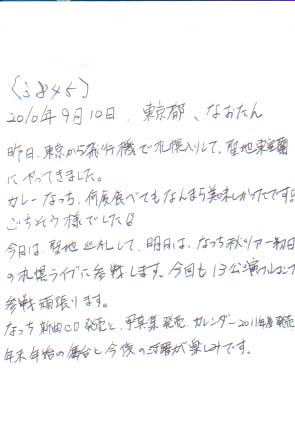 〈3845〉
2010年9月10日、東京都、なおたん
昨日、東京から飛行機で札幌入りして、聖地東室蘭
にやってきました。
カレーなっち、何度食べてもなんまら美味しかったです!
ごちそう様でした!
今日は、聖地巡礼して、明日は、なっち秋ツアー初日
の札幌ライブに参戦します。今回も13公演フルコンプ
参戦頑張ります。
なっち新曲CD発売と、写真集発売、カレンダー2011年度発売
年末年始の舞台と今後の活躍が楽しみです。